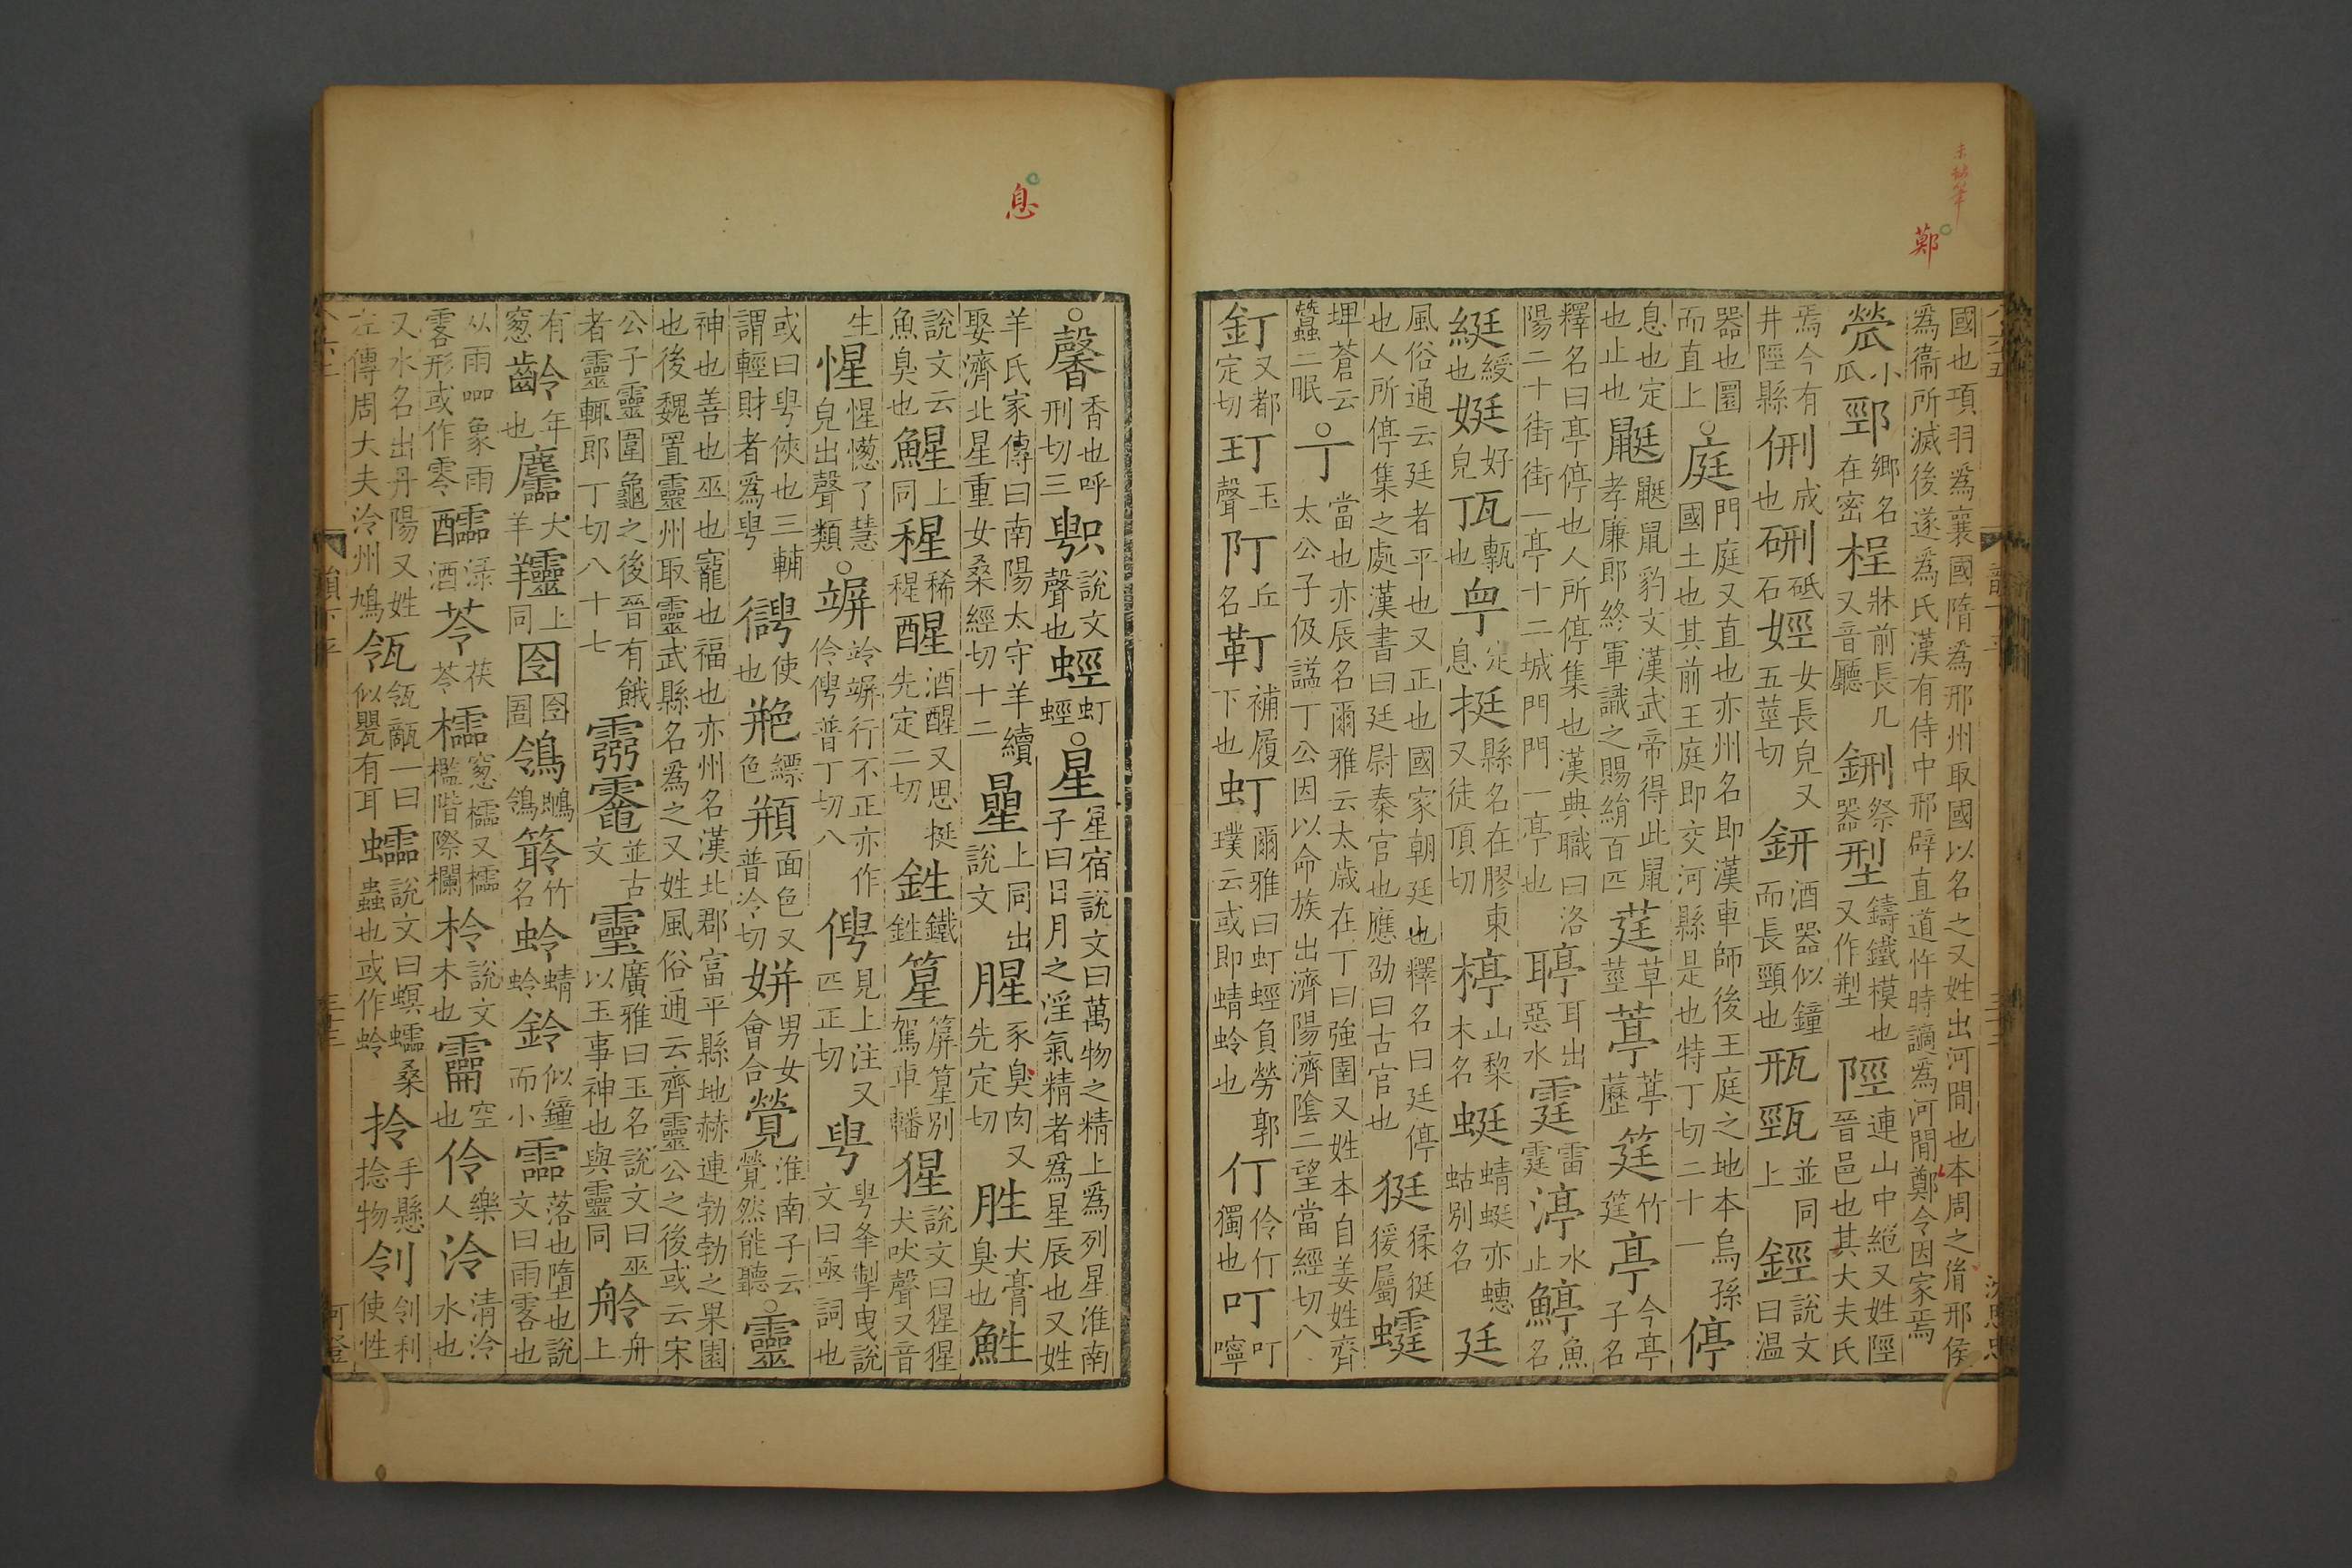 國也項羽為襄國隋為邢州取國以名之又姓出河間也本周之胤邢侯為衞所滅後遂為氏漢有侍中邢辟直道忤時謫為河間鄭令因家焉
小瓜 鄉名在密 桯牀前長几又音廳 鉶祭器 型鑄鐵模也又作 陘連山中絕又姓陘晉邑也其大夫氏
焉今有井陘縣 侀成也 硎砥石 娙女長皃又五莖切 鈃酒器似鐘而長頸也 並同上 鋞說文曰溫
器也圜而直上○庭門庭又直也亦州名即漢車師後王庭之地本烏孫國土也其前王庭即交河縣是也特丁切二十一 停
息也定也止也 鼮鼮鼠豹文漢武帝得此鼠孝廉郎終軍識之賜絹百匹 莛草莖 葶葶藶 筳竹筳 亭今亭子名
釋名曰亭停也人所停集也漢典職曰洛陽二十街街一亭十二城門門一亭也 聤耳出惡水 霆雷霆 渟水止 魚名
綎綬也 娗好皃 也 定息 挺縣名在膠東又徒頂切 楟山棃木名 蜓蜻蜓亦蟪蛄別名 廷
風俗通云廷者平也又正也國家朝廷也釋名曰廷停也人所停集之處漢書曰廷尉秦官也應劭曰古官也 㹶猱㹶猨屬 䗴
埤蒼云蠶二眠○丁當也亦辰名爾雅云太歲在丁曰強圉又姓本自姜姓齊太公子伋謚丁公因以命族出濟陽濟陰二望當經切八
釘又都定切 玎玉聲 丘名 靪補履下也 虰爾雅曰虰蛵負勞郭璞云或即蜻蛉也 仃伶仃獨也 叮叮嚀
○馨香也呼刑切三 說文聲也 蛵虰蛵○星星宿說文曰萬物之精上為列星淮南子曰日月之淫氣精者為星辰也又姓
羊氏家傳曰南陽太守羊續娶濟北星重女桑經切十二 曐上同出說文 腥豕臭肉又先定切 胜犬膏臭也 鮏
說文云魚臭也 鯹上同 稀 醒酒醒又思挺先定二切 鉎鐵鉎 篂篂別駕車轓 猩說文曰猩猩犬吠聲又音
生 惺惺憽了慧皃出聲類○竮竛竮行不正亦作伶俜普丁切八 俜見上注又匹正切 甹甹夆掣曳說文曰亟詞也
或曰甹俠也三輔謂輕財者為甹 使也 艵縹色 頩面色又普泠切 姘男女會合 覮淮南子云覮然能聽○靈
神也善也巫也寵也福也亦州名漢北郡富平縣地赫連勃勃之果園也後魏置靈州取靈武縣名為之又姓風俗通云齊靈公之後或云宋
公子靈圍龜之後晉有餓者靈輒郎丁切八十七 並古文 靈廣雅曰玉名說文曰巫以玉事神也與靈同 舲舟上
有窻 齡年也 麢大羊 上同 囹囹圄 鴒䳭鴒 笭竹名 蛉蜻蛉 鈴似鐘而小 霝落也墮也說文曰雨零也
从雨𠱠象雨零形或作零 醽淥酒 苓茯苓 櫺窻櫺又櫺檻階際欄 柃說文木也 空也 伶樂人 泠清泠水也
又水名出丹陽又姓左傳周大夫泠州鳩 瓴瓴甋一曰似甖有耳 蠕說文曰螟桑蟲也或作蛉 拎手懸捻物 刢刢利使性
鄭
息